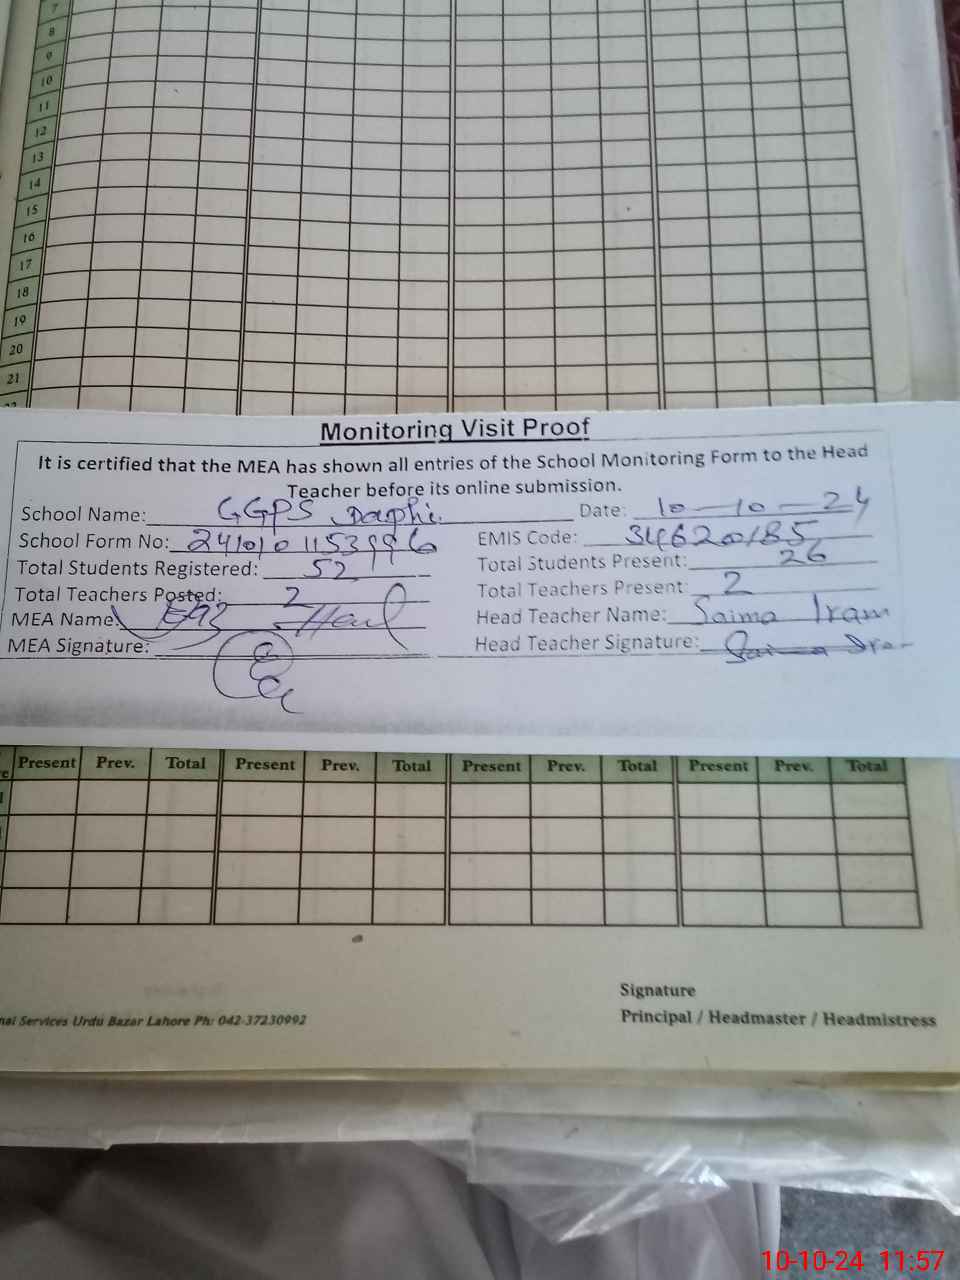 7
8
9
10
11
12
13
14
15
16
17
18
19
20
21
Monitoring Visit Proof
It is certified that the MEA has shown all entries of the School Monitoring Form to the Head
Teacher before its online submission.
School Name: GGPS Daphi. Date: 10-10-24
School Form No: EMIS Code: 34620185
Total Students Registered: 52 Total Students Present: 26
Total Teachers Posted: 2 Total Teachers Present: 2
MEA Name: Head Teacher Name: Saima Iram
MEA Signature: Head Teacher Signature: Saima Iram
Present Prev. Total Present Prev. Total Present Prev. Total Present Prev. Total
Signature
Services Urdu Bazar Lahore Ph: 042-37230992 Principal / Headmaster / Headmistress
10-10-24 11:57